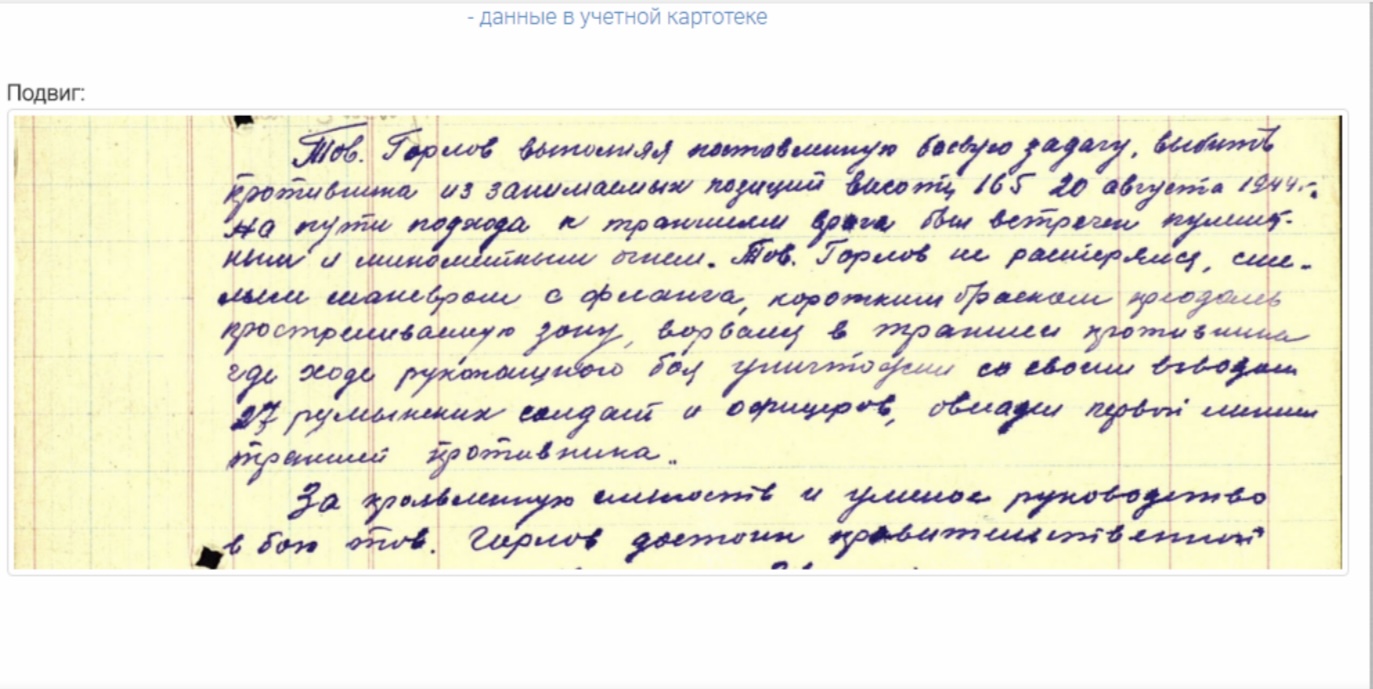 - данные в учетной картотеке
Подвиг:
Тов. Горлов выполняя поставленную боевую задачу, выбить
противника из занимаемых позиций высоты 165 20 августа 1944 г.
на пути подхода к траншеям врага был встречен пулемет-
ным и минометным огнем. Тов. Горлов не растерялся, сме-
лым маневром с фланга, коротким броском преодолев
простреливаемую зону, ворвался в траншеи противника
где ходе рукопашного боя уничтожил со своим взводом
27 румынских солдат и офицеров, овладел первой линией
траншей противника.
За проявленную смелость и умелое руководство
в бою тов. Горлов достоин правительственной